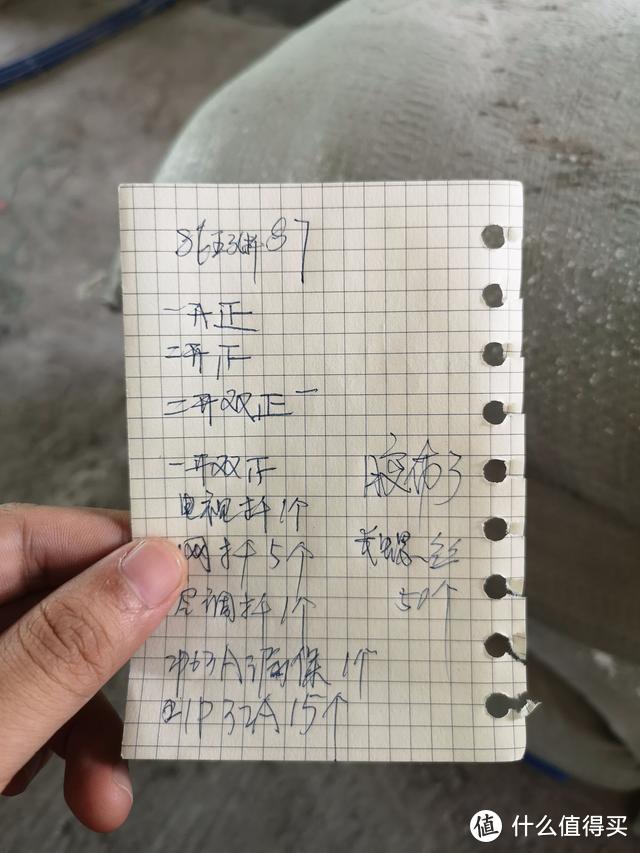 86五孔插87
一开正
二开正
二开双正一
一开双正
电视插1个
网插5个
空调插1个
2P63A漏保1个
1P32A15个
胶布3
长螺丝
50个
值 什么值得买